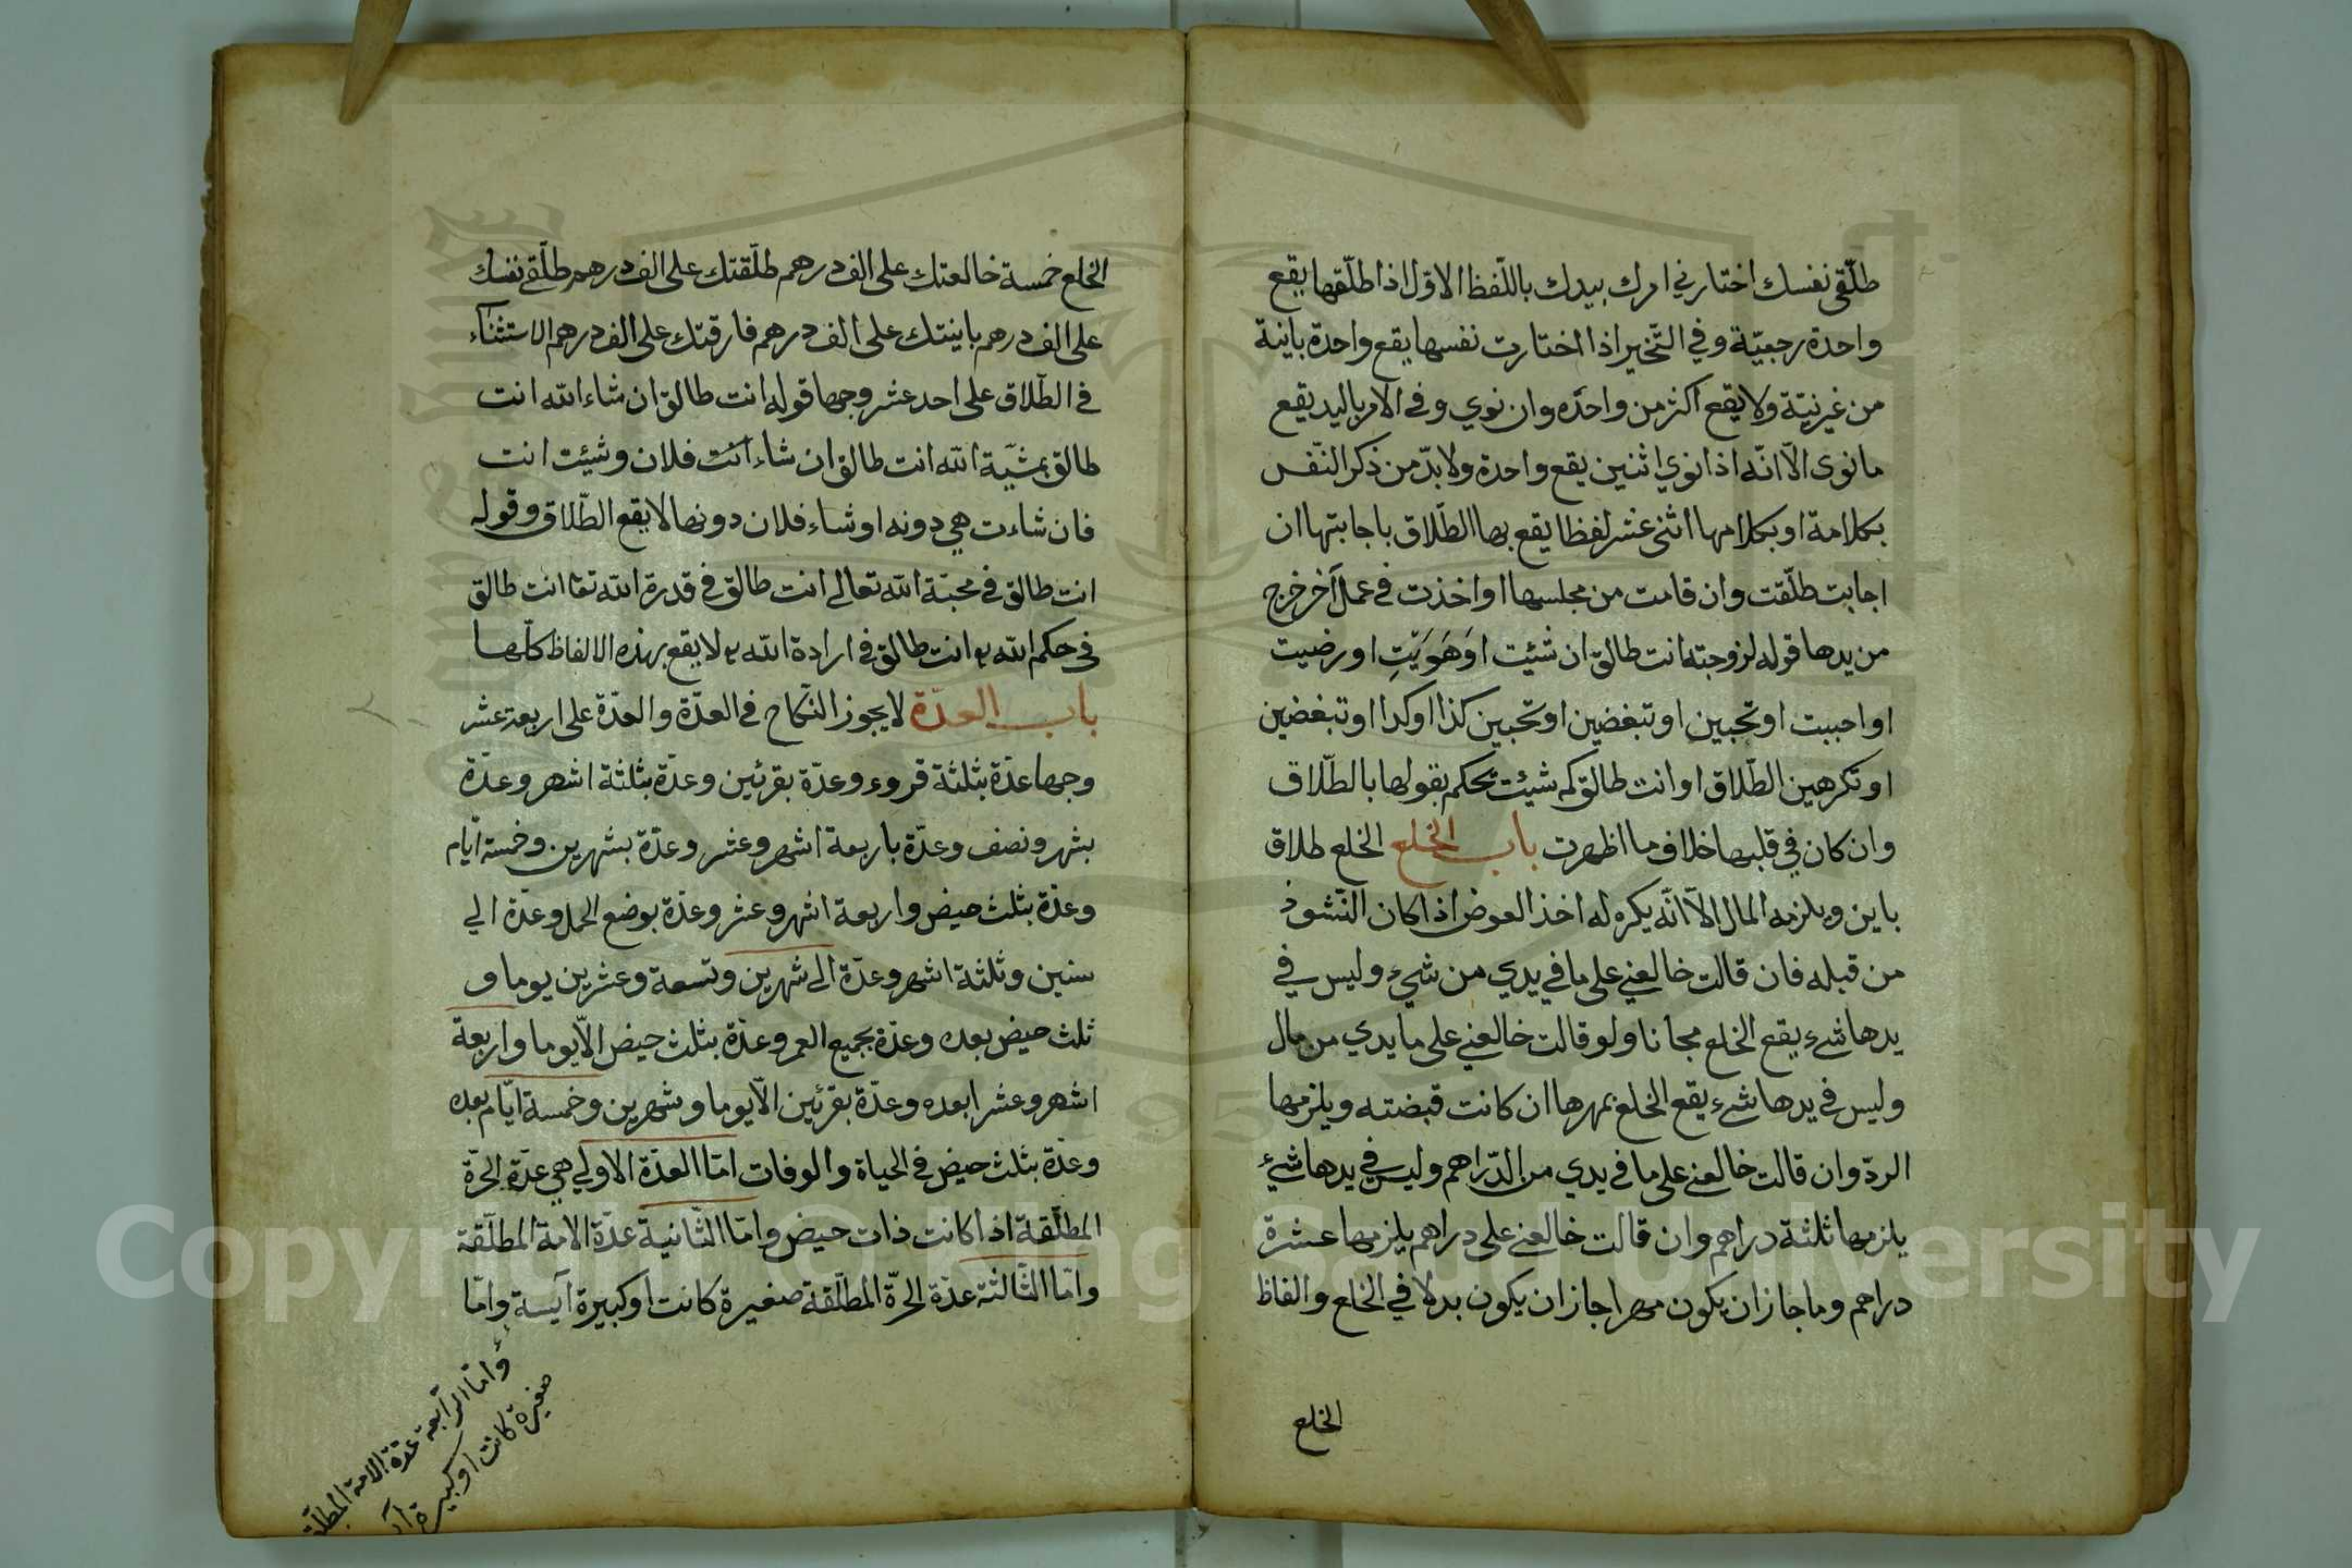 طلّقي نفسك اختاري امرك بيدك باللّفظ الاوّل اذا طلّقها يقع
واحدة رجعيّة وفي التّخير اذا اختارت نفسها يقع واحدة باينة
من غير نيّة ولا يقع اكثر من واحدة وان نوي وفي الامر باليد يقع
ما نوى الّا انّه اذا نوي اثنين يقع واحدة ولا بدّ من ذكر النّفس
بكلامة او بكلامها اثنى عشر لفظا يقع بها الطّلاق باجابتها ان
اجابت طلّقت وان قامت من مجلسها او اخذت في عمل آخر خرج
من يدها قوله لزوجته انت طالق ان شئت او هَوَيْتِ او رضيت
او احببت او تحبين او تبغضين او تحبين كذا او كذا او تبغضين
او تكرهين الطّلاق او انت طالق كم شيئت تحكم بقولها بالطّلاق
وان كان في قلبها خلاف ما اظهرت باب الخلع الخلع طلاق
باين ويلزمه المال الّا انّه يكره له اخذ العوض اذا كان النّشوذ
من قبله فان قالت خالعني على ما في يدي من شيء وليس في
يدها شيء يقع الخلع مجانا ولو قالت خالعني على ما يدي من مال
وليس في يدها شيء يقع الخلع بمهرها ان كانت قبضته ويلزمها
الردّ وان قالت خالعني على ما في يدي من الدّراهم وليس في يدها شيء
يلزمها ثلثة دراهم وان قالت خالعني على دراهم يلزمها عشرة
دراهم وما جاز ان يكون مهرا جاز ان يكون بدلا في الخلع والفاظ
الخلع
الخلع خمسة خالعتك على الف درهم طلّقتك على الف درهم طلّقي نفسك
على الف درهم باينتك على الف درهم فارقتك على الف درهم الاستثنآء
في الطّلاق على احد عشر وجها قوله انت طالق ان شاء الله انت
طالق بمشيّة الله انت طالق ان شاء انت فلان وشيئت انت
فان شاءت هي دونه او شاء فلان دونها لا يقع الطّلاق وقوله
انت طالق في محبّة الله تعالى انت طالق في قدرة الله تعا انت طالق
في حكم الله انت طالق في ارادة الله لا يقع بهذه الالفاظ كلّها
باب العدّة لا يجوز النّكاح في العدّة والعدّة على اربعة عشر
وجها عدّة بثلثة قروء وعدّة بقرئين وعدّة بثلثة اشهر وعدّة
بشهر ونصف وعدّة باربعة اشهر وعشر وعدّة بشهرين وخمسة ايّام
وعدّة بثلث حيض واربعة اشهر وعشر وعدّة بوضع الحمل وعدّة الي
سنين وثلثة اشهر وعدّة الى شهرين وتسعة وعشرين يوما و
ثلث حيض بعده وعدّة بجميع العمر وعدّة بثلث حيض الّا يوما واربعة
اشهر وعشر ابعده وعدّة بقرئين الّا يوما وشهرين وخمسة ايّام بعده
وعدّة بثلث حيض في الحياة والوفات امّا العدّة الاولي هي عدّة الحرّة
المطلّقة اذا كانت ذات حيض وامّا الثّانية عدّة الامة المطلّقة
وامّا الثّالثة عدّة الحرّة المطلّقة صغيرة كانت او كبيرة آيسة وامّا
وامّا الرّابعة عدّة الامة المطلّقة
صغيرة كانت او كبيرة
Copyright © King Saud University